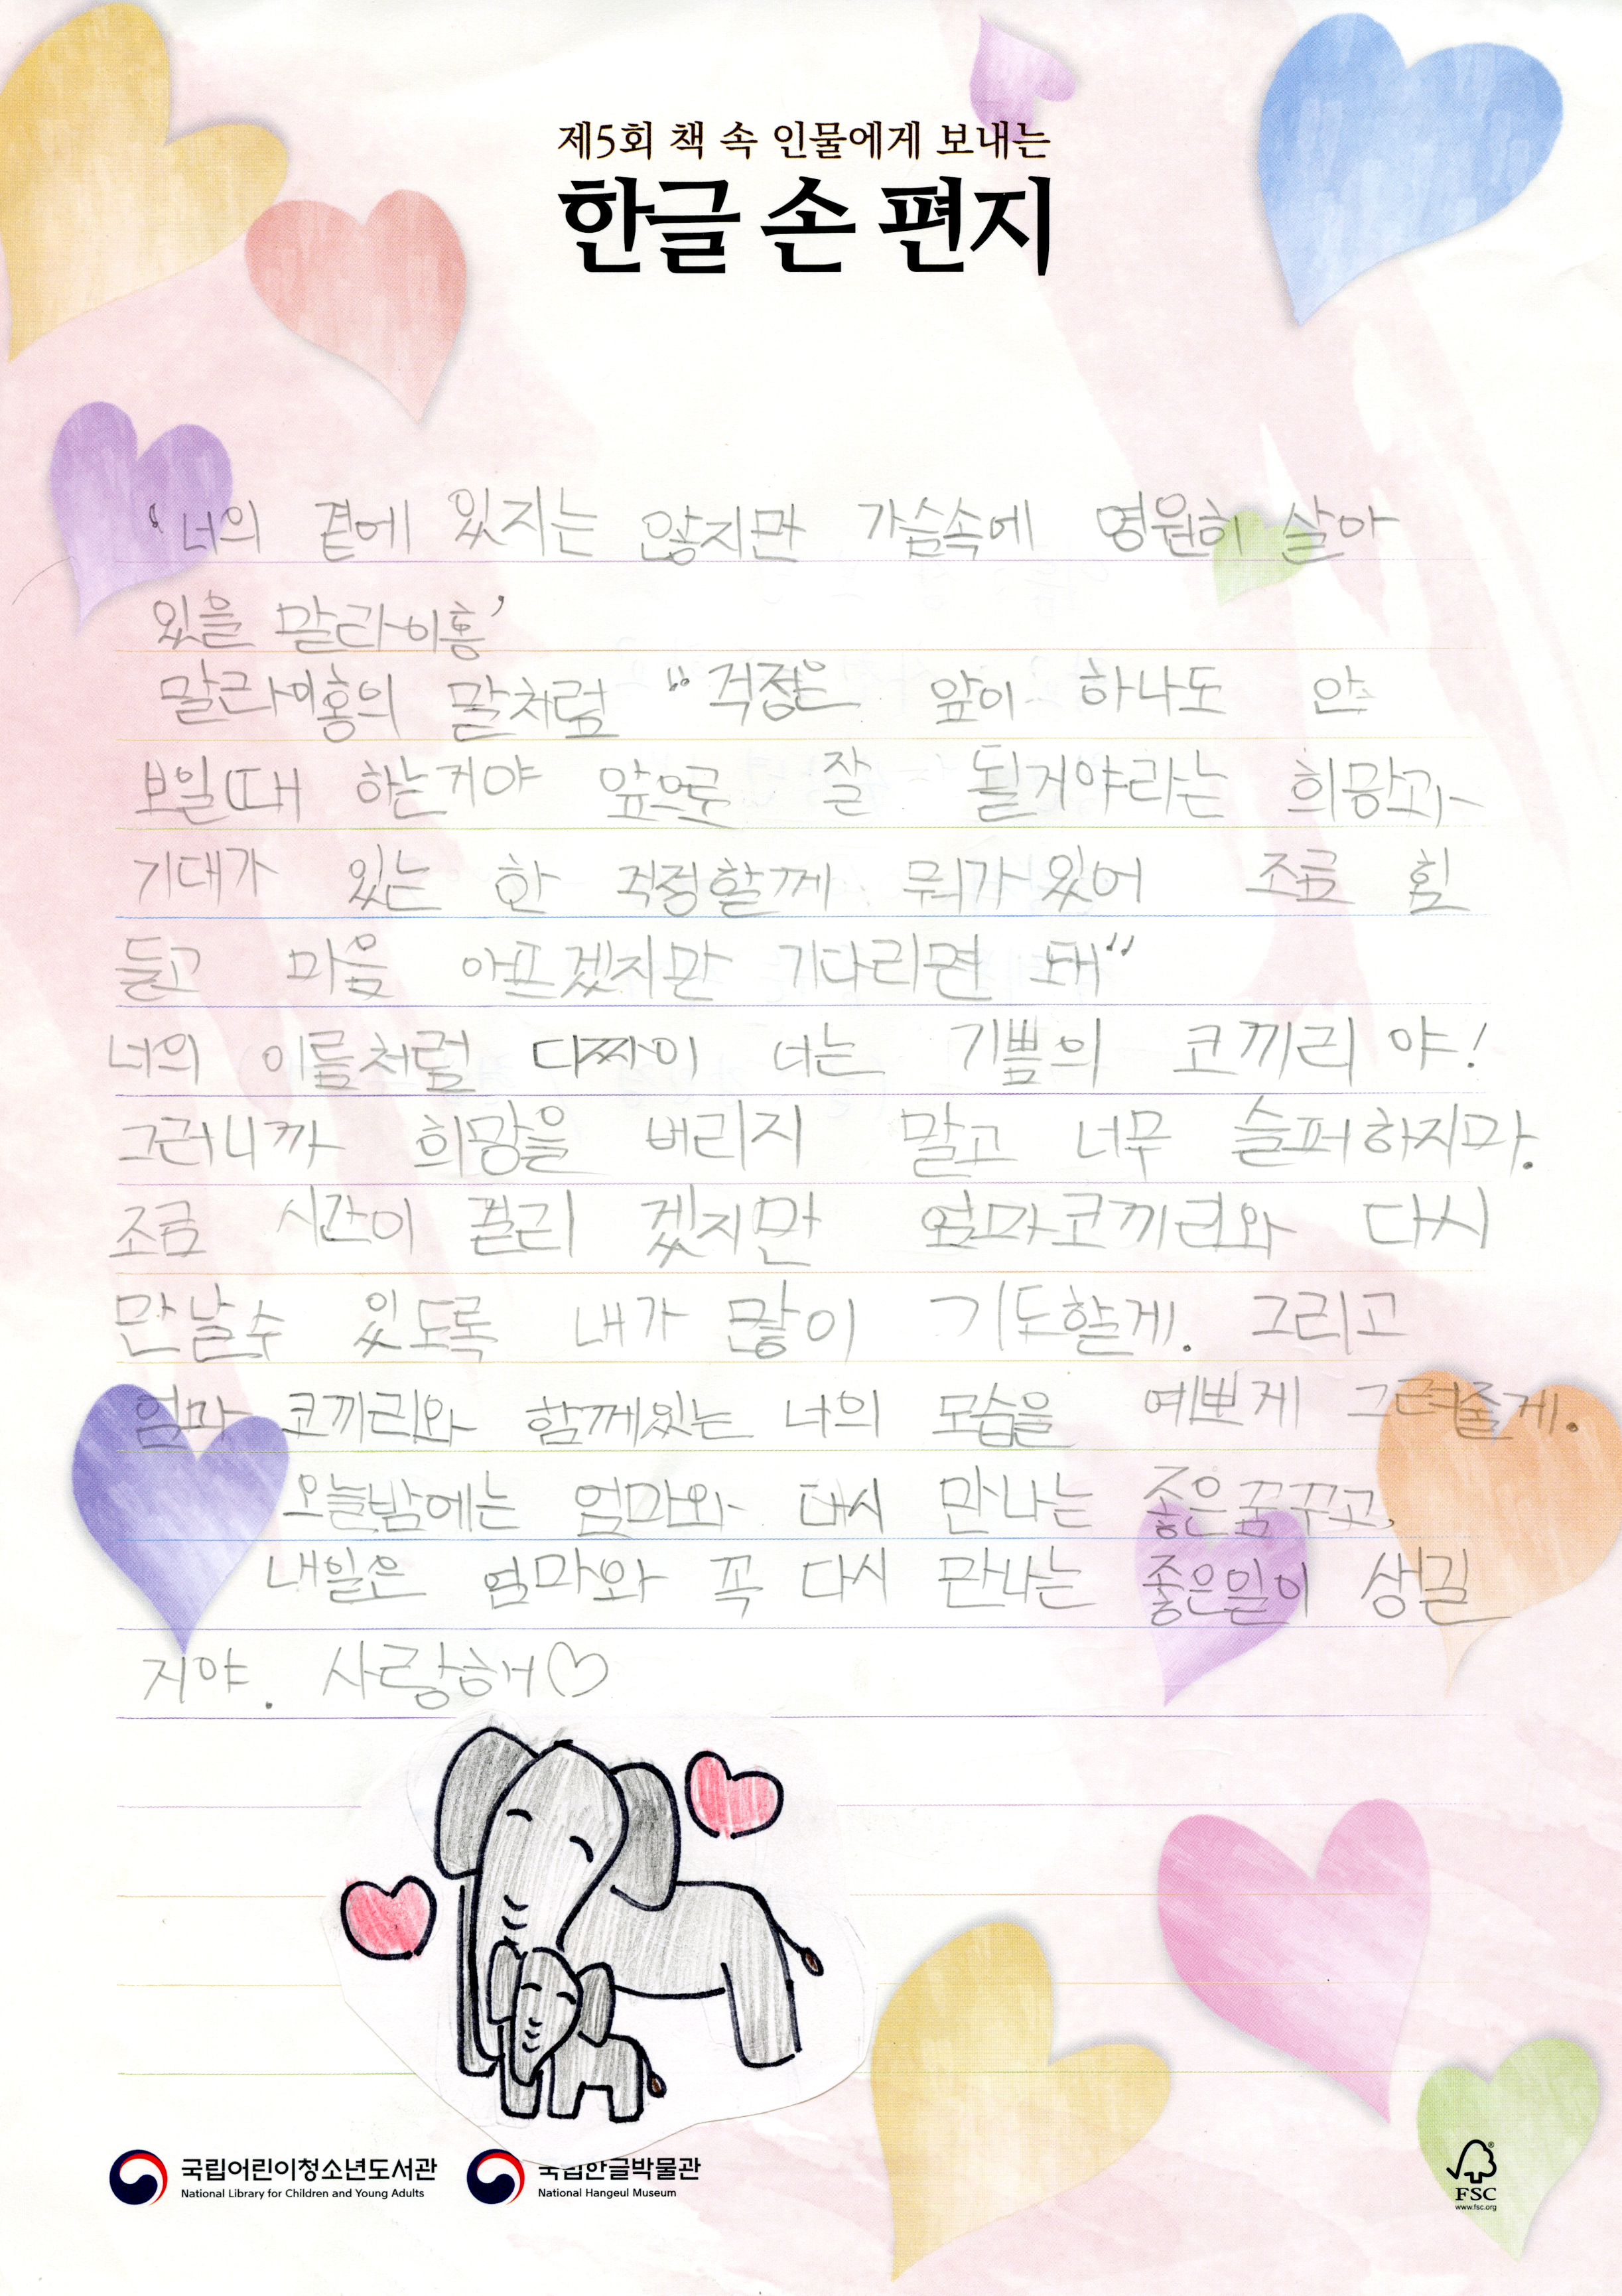 제5회 책 속 인물에게 보내는
한글 손 편지
'너의 곁에 있지는 않지만 가슴속에 영원히 살아
있을 말라이홍'
말라이홍의 말처럼 "걱정은 앞이 하나도 안
보일때 하는거야 앞으로 잘 될거야라는 희망과
기대가 있는 한 걱정할께 뭐가 있어 조금 힘
들고 마음 아프겠지만 기다리면 돼"
너의 이름처럼 디짜이 너는 기쁨의 코끼리 야!
그러니까 희망을 버리지 말고 너무 슬퍼하지마.
조금 시간이 걸리 겠지만 엄마코끼리와 다시
만날수 있도록 내가 많이 기도할게. 그리고
엄마 코끼리와 함께있는 너의 모습을 예쁘게 그려줄게.
오늘밤에는 엄마와 다시 만나는 좋은꿈꾸고,
내일은 엄마와 꼭 다시 만나는 좋은일이 생길
지야. 사랑해♡
국립어린이청소년도서관
National Library for Children and Young Adults
국립한글박물관
National Hangeul Museum
FSC
www.fsc.org